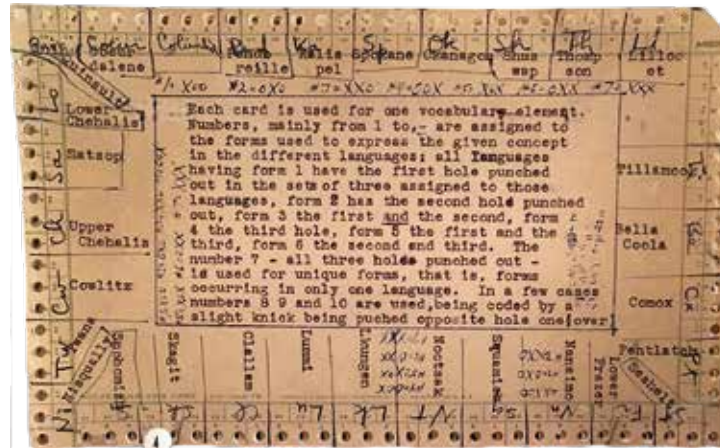 Columbia
Kalis Spokane Okanagon Shus Thomp Lilloo
dalene reille pel wap son et
Quinault
Lower
Chehalis
Satsop
Upper
Chehalis
Cowlitz
Each card is used for one vocabulary element.
Numbers, mainly from 1 to,- are assigned to
the forms used to express the given concept
in the different languages; all languages
having form 1 have the first hole punched
out in the sets of three assigned to those
languages, form 2 has the second hole punched
out, form 3 the first and the second, form
4 the third hole, form 5 the first and the
third, form 6 the second and third. The
number 7 - all three holes punched out -
is used for unique forms, that is, forms
occurring in only one language. In a few cases
numbers 8 9 and 10 are used,being coded by a
slight knick being puched opposite hole one(over
Tillamook
Bella
Coola
Comox
Pentlatch
Seshelt
Twana
Nisqually
Snohomish
Skagit
Clallam
Lummi
Lkungen
Nootsak
Squamish
Nanaimo
Lower
Fraser
Ni
Sk
Cl
Lu
Lk
Nt
Sq
Na